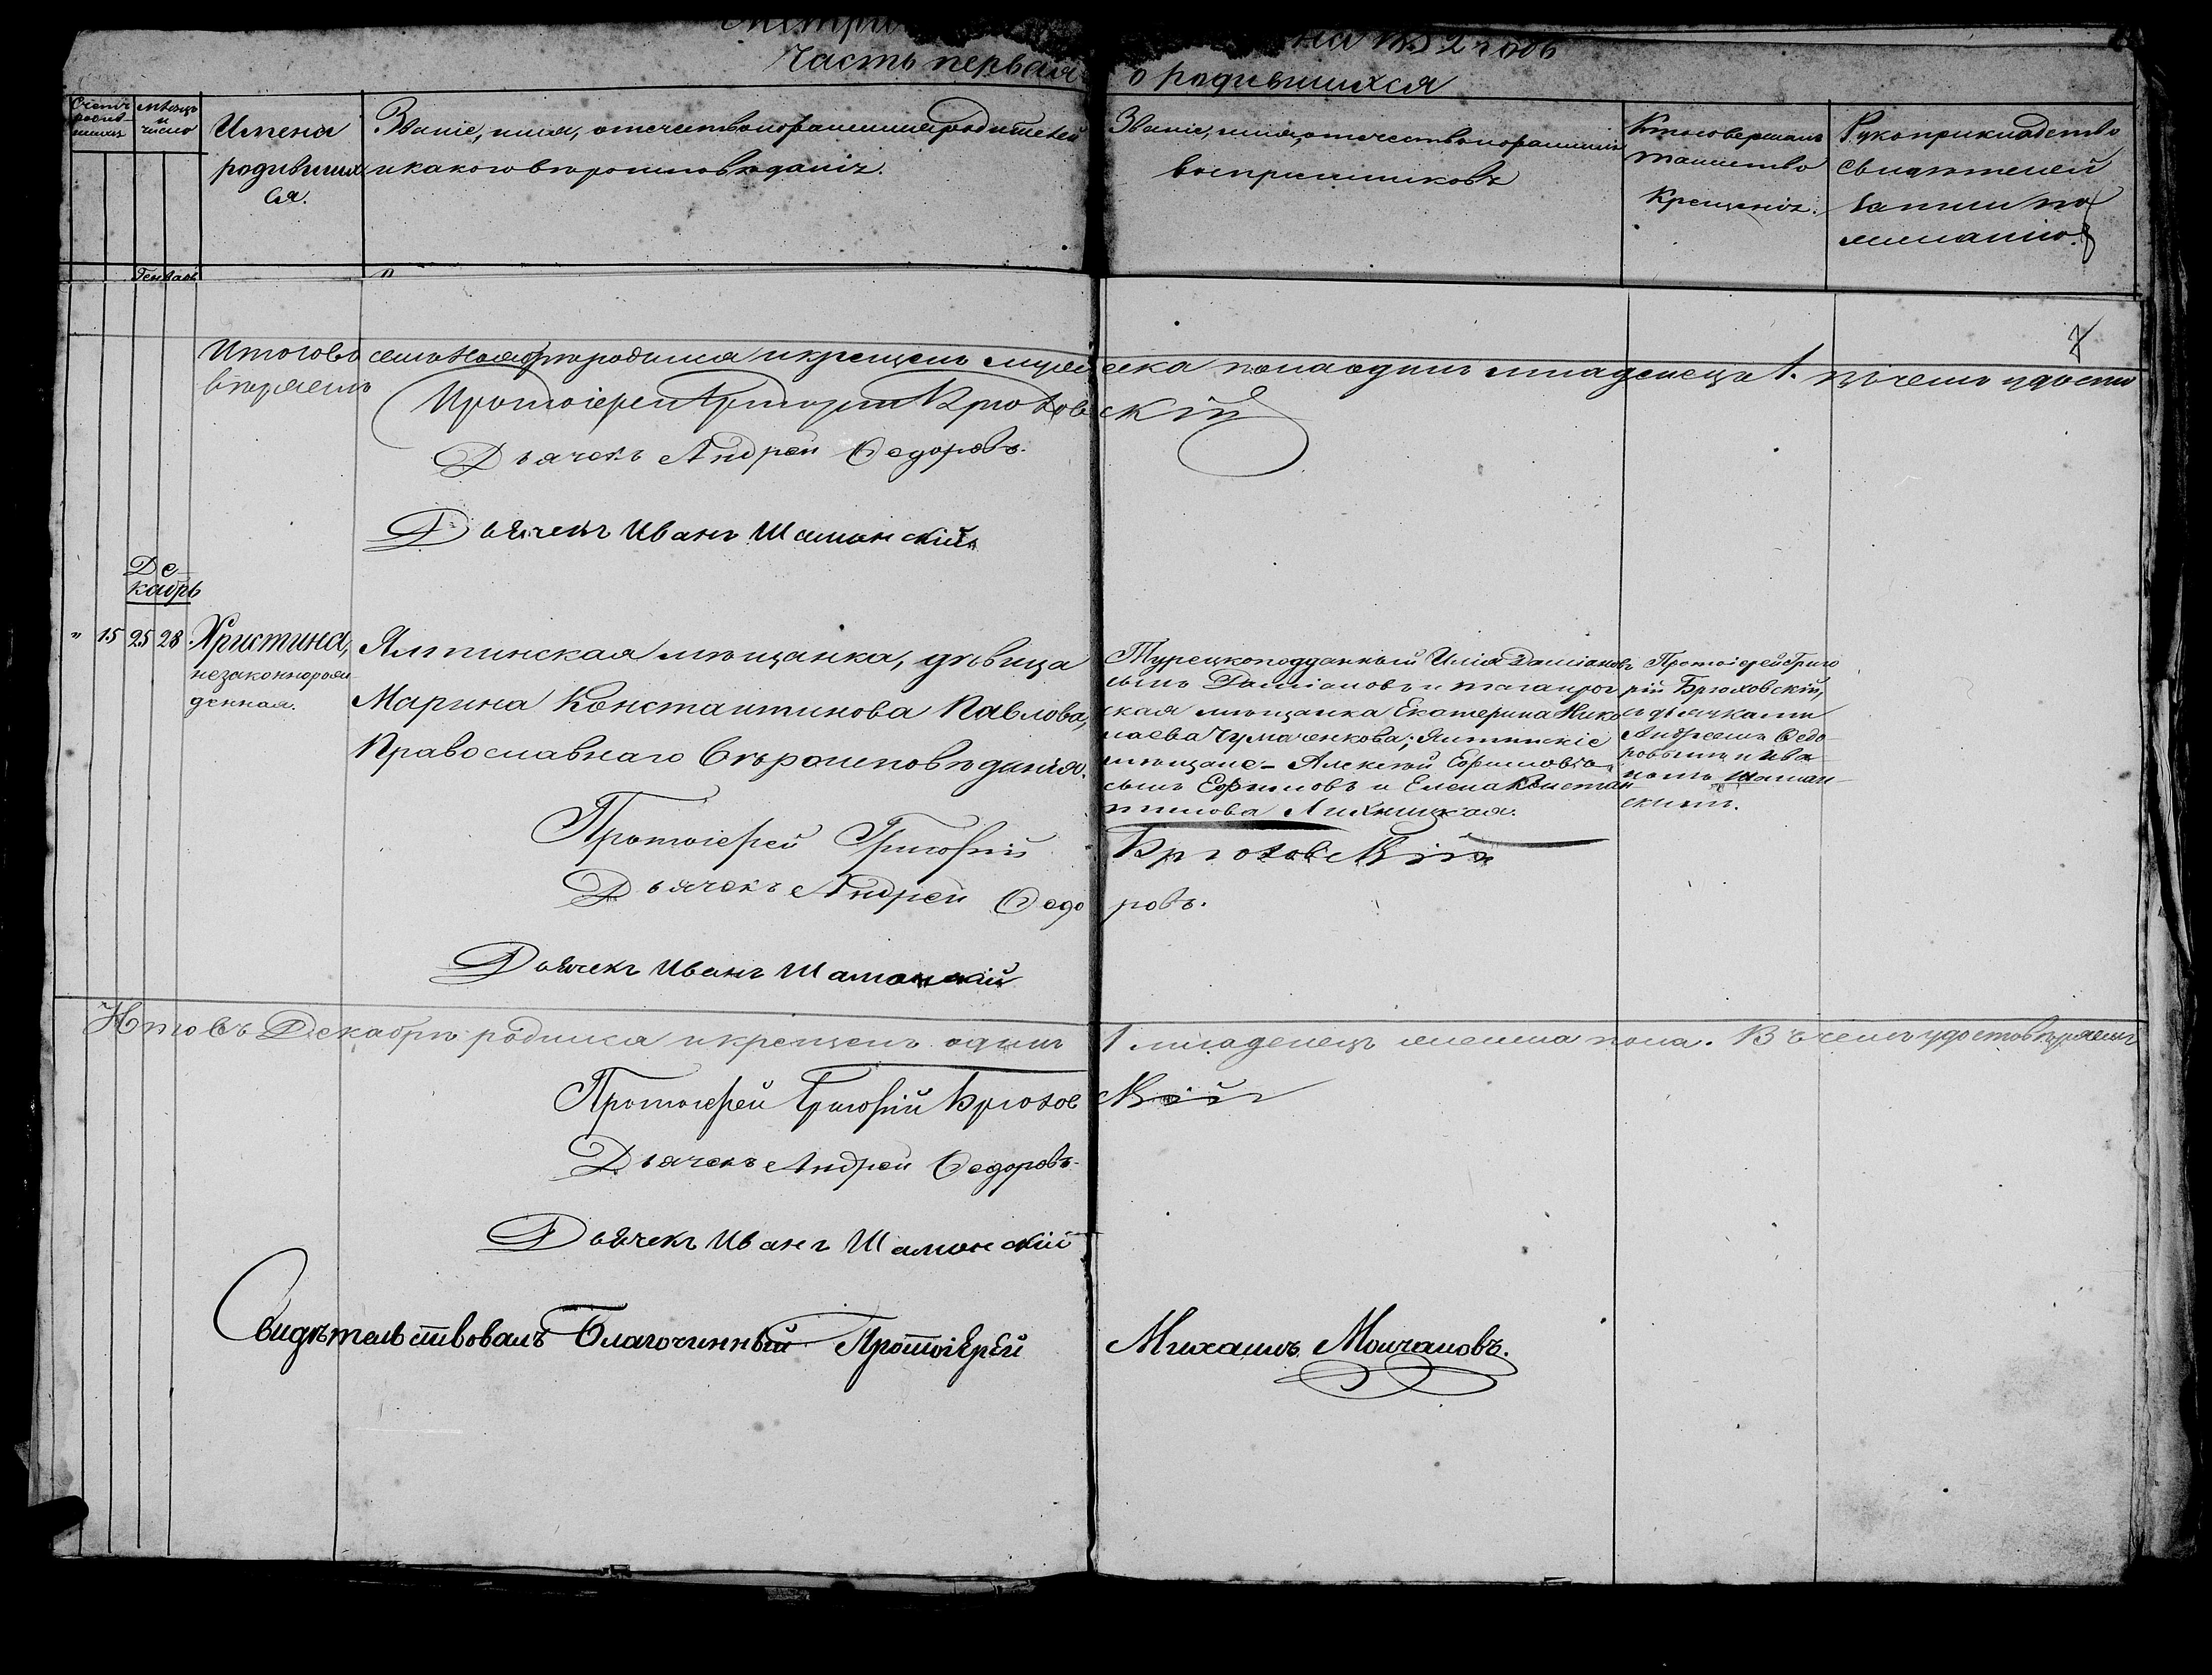 на 1852 годъ
Часть первая о родившихся
Счетъ родив-шихся
Мѣсяцъ и число
Имена родивших ся.
Званіе, имя, отечество и фамилія родителей
и какого вѣроисповѣданія.
Званіе, имя, отечество и фамилія
воспріемниковъ
Кто совершалъ
таинство
Крещенія.
Рукоприкладство
свидѣтелей
записи по
желанію.
Генварь
7
Итого въ семъ Ноябрѣ родился и крещенъ мужеска пола одинъ младенецъ 1. въ чемъ удосто
вѣряемъ
Протоіерей Григорій Брюховскій
Дьячекъ Андрей Ѳедоровъ.
Дьячекъ Иванъ Шаманскій
Де-
кабрь
" 15 25 28
Христина,
незаконнорож
денная.
Ялтинская мѣщанка, дѣвица
Марина Константинова Павлова,
Православнаго вѣроисповѣданія.
Турецкоподданный Илія Даміановъ
сынъ Даміановъ и таганрог
ская мѣщанка Екатерина Нико
лаева Чумаченкова; Ялтинскіе
мѣщане - Алексѣй Ефимовъ
сынъ Ефимовъ и Елена Констан
тинова Лихницкая.
Протоіерей Григо
рій Брюховскій,
съ дьячками
Андреемъ Ѳедо
ровымъ и Ива
номъ Шаман-
скимъ.
Протоіерей Григорій Брюховскій
Дьячекъ Андрей Ѳедоровъ.
Дьячекъ Иванъ Шаманскій
Итого въ Декабрѣ родился и крещенъ одинъ 1 младенецъ женска пола. Въ чемъ удостовѣряемъ
Протоіерей Григорій Брюховскій
Дьячекъ Андрей Ѳедоровъ
Дьячекъ Иванъ Шаманскій
Свидѣтельствовалъ Благочинный Протоіерей Михаилъ Молчановъ.